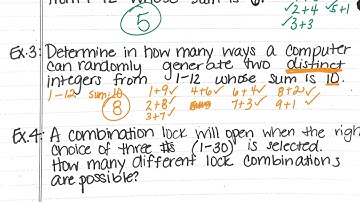 from 1-12 whose sum is 6.
5
✓2+4 ✓5+1
✓3+3
Ex.3: Determine in how many ways a computer
can randomly generate two distinct
integers from 1-12 whose sum is 10.
1-12 sum: 10 1+9✓ 4+6✓ 6+4✓ 8+2✓
8 2+8✓ 7+3✓ 9+1✓
3+7✓
Ex.4: A combination lock will open when the righ
choice of three #s (1-30) is selected.
How many different lock combinations
are possible?